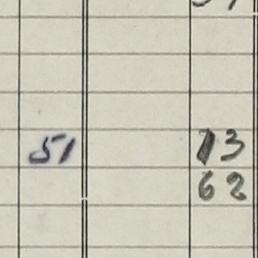 51 13
62